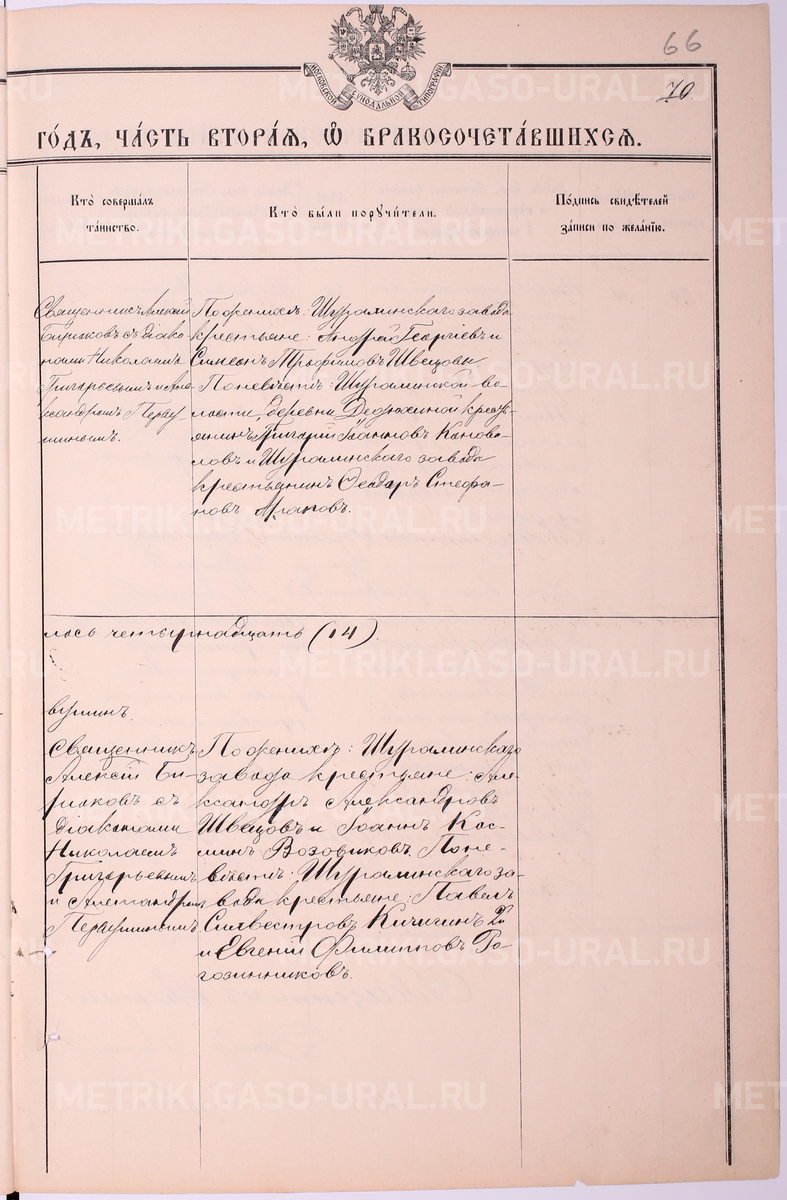 66
МОСКОВСКОЙ СѴНОДАЛЬНОЙ ТИПОГРАФІИ
70.
ГО́ДЪ, ЧА́СТЬ ВТОРА́Ѧ, Ѽ БРАКОСОЧЕТА́ВШИХСѦ.
Кто̀ соверша́лъ
та́инство.
Кто̀ бы́ли порꙋчи́тели.
По́дпись свидѣ́телей
за́писи по жела́нїю.
Священникъ Алексій
Бирюковъ съ діако-
нами Николаемъ
Григорьевымъ и Але-
ксандромъ Перву-
шинымъ.
По женихѣ: Шуралинскаго завода
крестьяне: Андрей Георгіевъ и
Симеонъ Трофимовъ Швецовы
По невѣстѣ: Шуралинской во-
лости, деревни крестья-
нинъ Григорій Іоанновъ Конова-
ловъ и Шуралинскаго завода
крестьянинъ Ѳеодоръ Стефа-
новъ
лось четырнадцать (14).
вушинъ.
Священникъ
Алексій Би-
рюковъ съ
діаконами
Николаемъ
Григорьевымъ
и Александромъ
Первушинымъ.
По женихѣ: Шуралинскаго
завода крестьяне: Але-
ксандръ Александровъ
Швецовъ и Іоаннъ Кос-
минъ Возовиковъ. По не-
вѣстѣ: Шуралинскаго за-
вода крестьяне: Павелъ
Сильвестровъ Кичигинъ 2й
и Евгеній Филипповъ Ро-
гозинниковъ.
METRIKI.GASO-URAL.RU